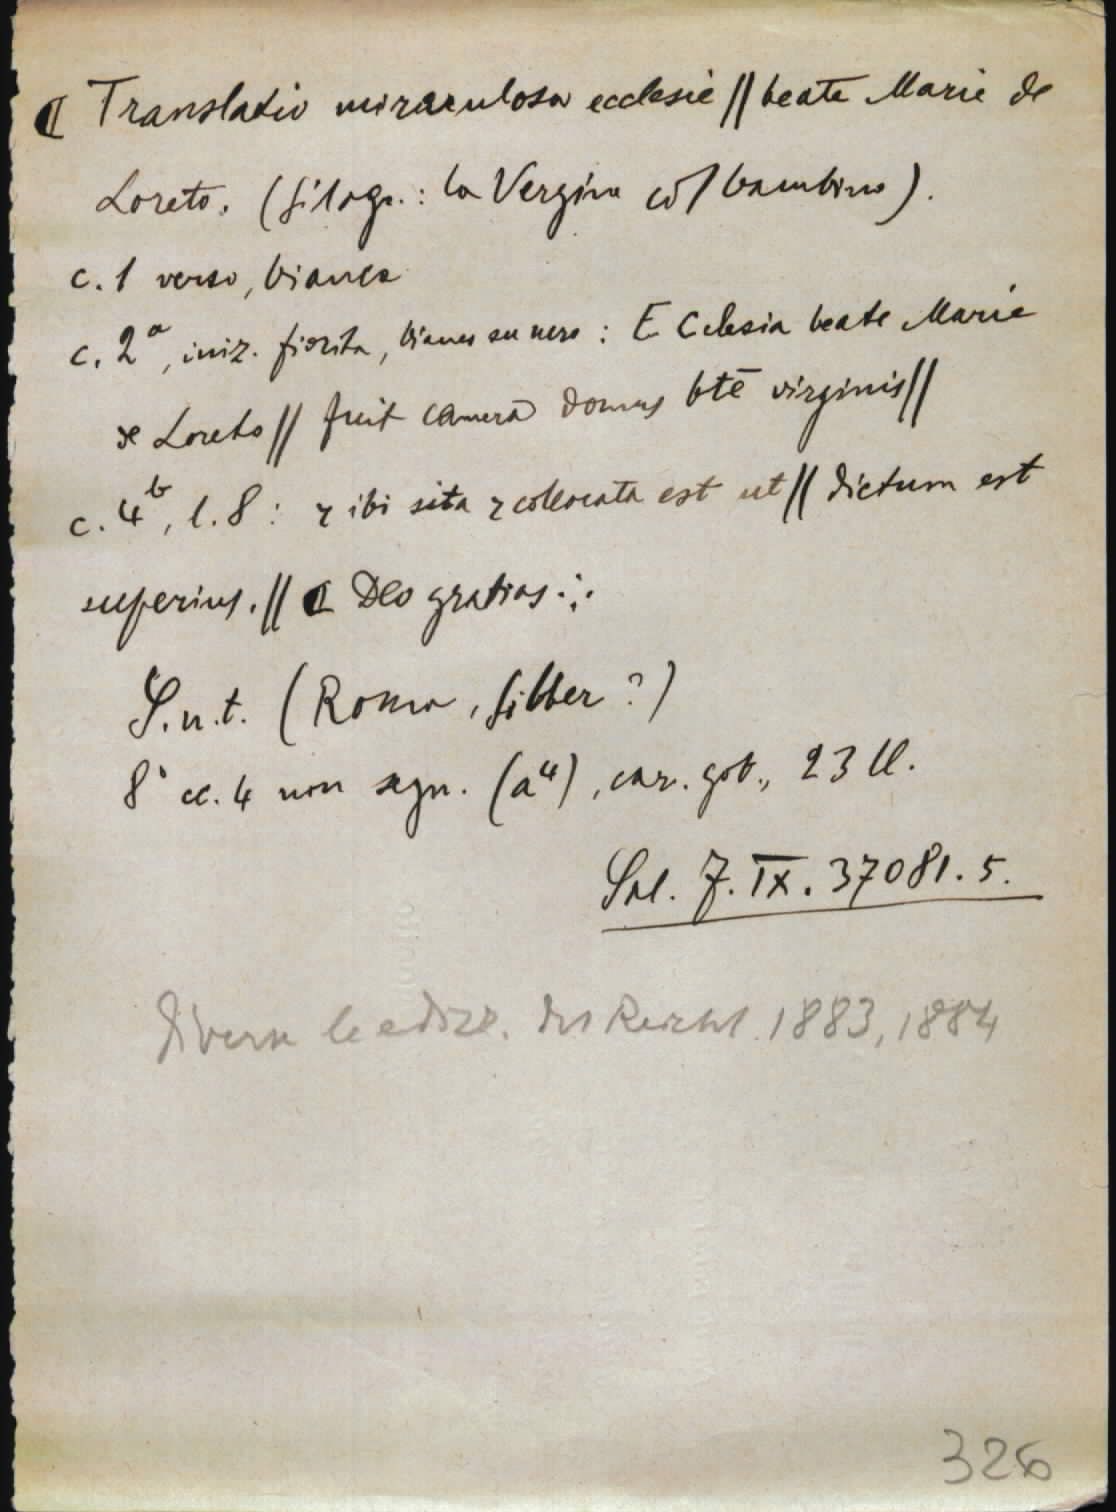 ¶ Translatio miraculosa ecclesie || beate Marie de
Loreto. (silogr.: la Vergine col bambino).
c. 1 verso, bianca
c. 2ª, iniz. fiorita, bianca su nero: E Cclesia beate Marie
de Loreto || fuit camera domus btē virginis ||
c. 4ᵇ, l. 8: ⁊ ibi sita ⁊ collocata est ut || dictum est
superius. || ¶ Deo gratias ·:·
S.n.t. (Roma, Silber?)
8° cc. 4 non segn. (a⁴), car. got., 23 ll.
Sal. 7. IX. 37081. 5.
Diversa le ediz. del Reichl. 1883, 1884
326